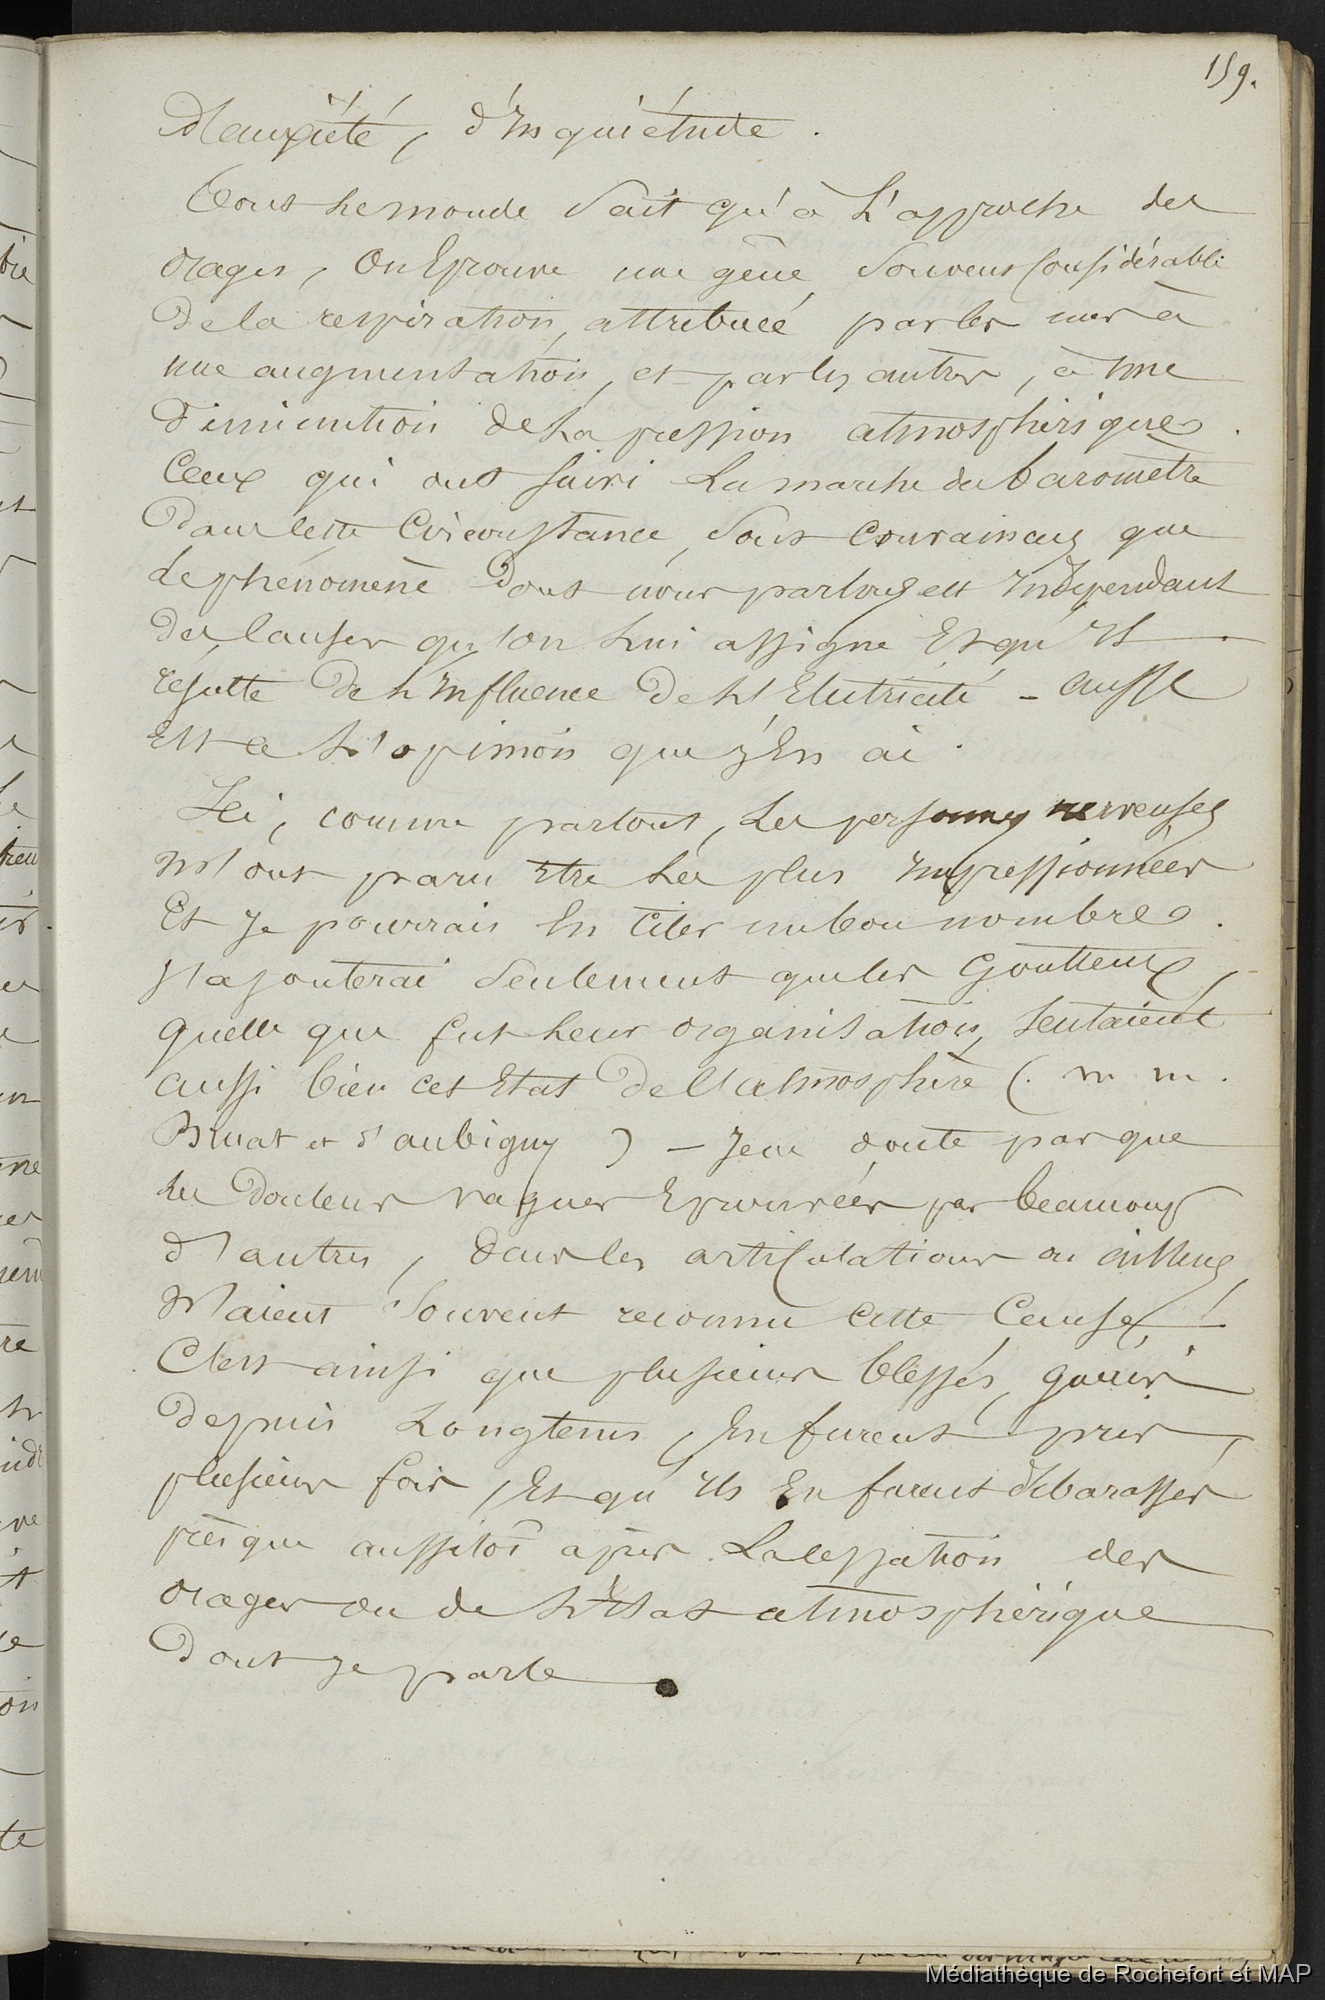 159.
D'anxiété, d'Inquiétude.
Tout le monde Sait qu'à L'approche des
orages, On Eprouve une gêne Souvent Considérable
De la respiration, attribuée par les uns à
une augmentation, et par les autres, à une
Diminution De La pression atmosphérique.
Ceux qui ont Suivi La marche du baromètre
Dans Cette Circonstance, Sont Convaincus que
Le phénomène Dont nous parlons est Indépendant
Des Causes qu'on Lui assigne Et qu'Il
résulte De L'Influence De L'Electricité - aussi
Est Ce L'opinion que j'En ai.
Ici, comme partout, Les personnes nerveuses
m'ont paru Etre Les plus Impressionnées
Et Je pourrais En Citer un bon nombre.
J'ajouterai Seulement que les Goutteux,
quelle que fut Leur organisation, Sentaient
aussi bien cet Etat De l'atmosphère (. m m.
Bruat et d'aubigny ) - Je ne doute pas que
Les Douleurs vagues Eprouvées par beaucoup
d'autres, Dans les articulations ou ailleurs,
N'aient Souvent reconnu cette Cause !
C'est ainsi que plusieurs blessés, guéris
Depuis Longtems, En furent pris,
plusieurs fois, Et qu'Ils En furent débarassés
presque aussitôt après La Cessation des
orages ou de L'Etat atmosphérique
Dont Je parle.
Médiathèque de Rochefort et MAP